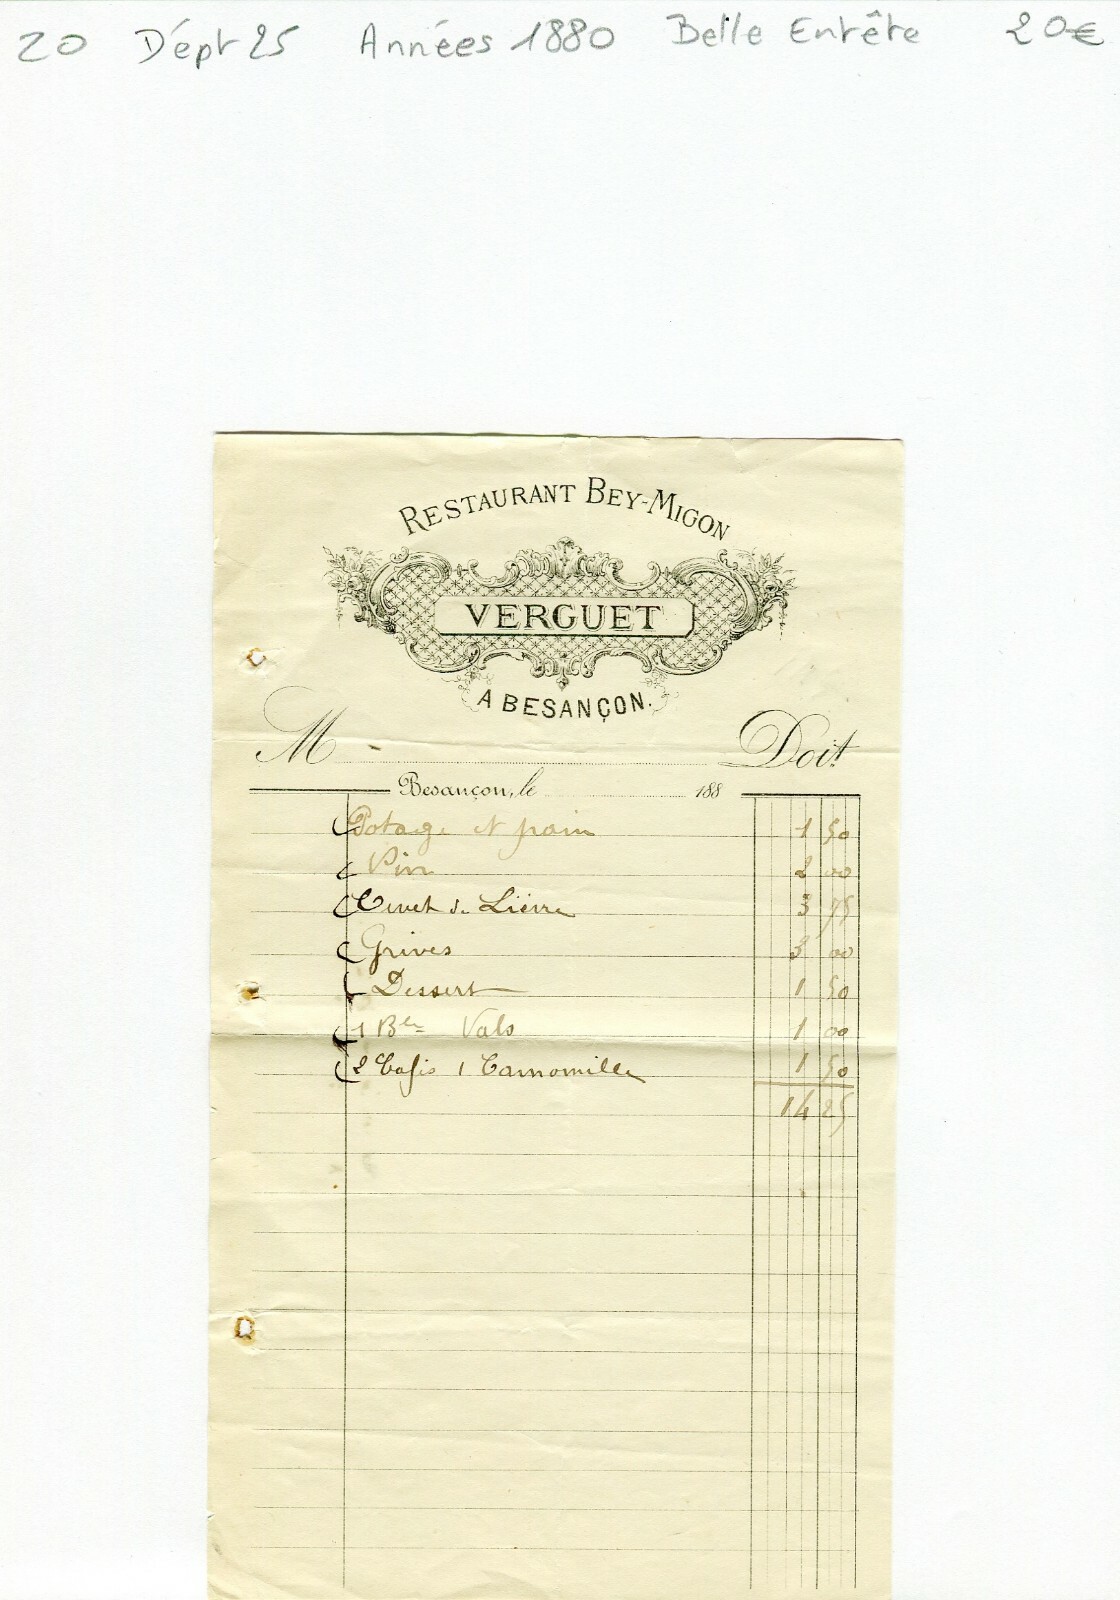 20 Dépt 25 Années 1880 Belle Entête 20€
RESTAURANT BEY-MIGON
VERGUET
A BESANÇON.
M Doit
Besançon, le 188
Potage et pain 1 50
Vin 2 00
Civet de Lièvre 3 75
Grives 3 00
Dessert 1 50
1 Ble Vals 1 00
2 Cafés 1 Camomille 1 50
14 25